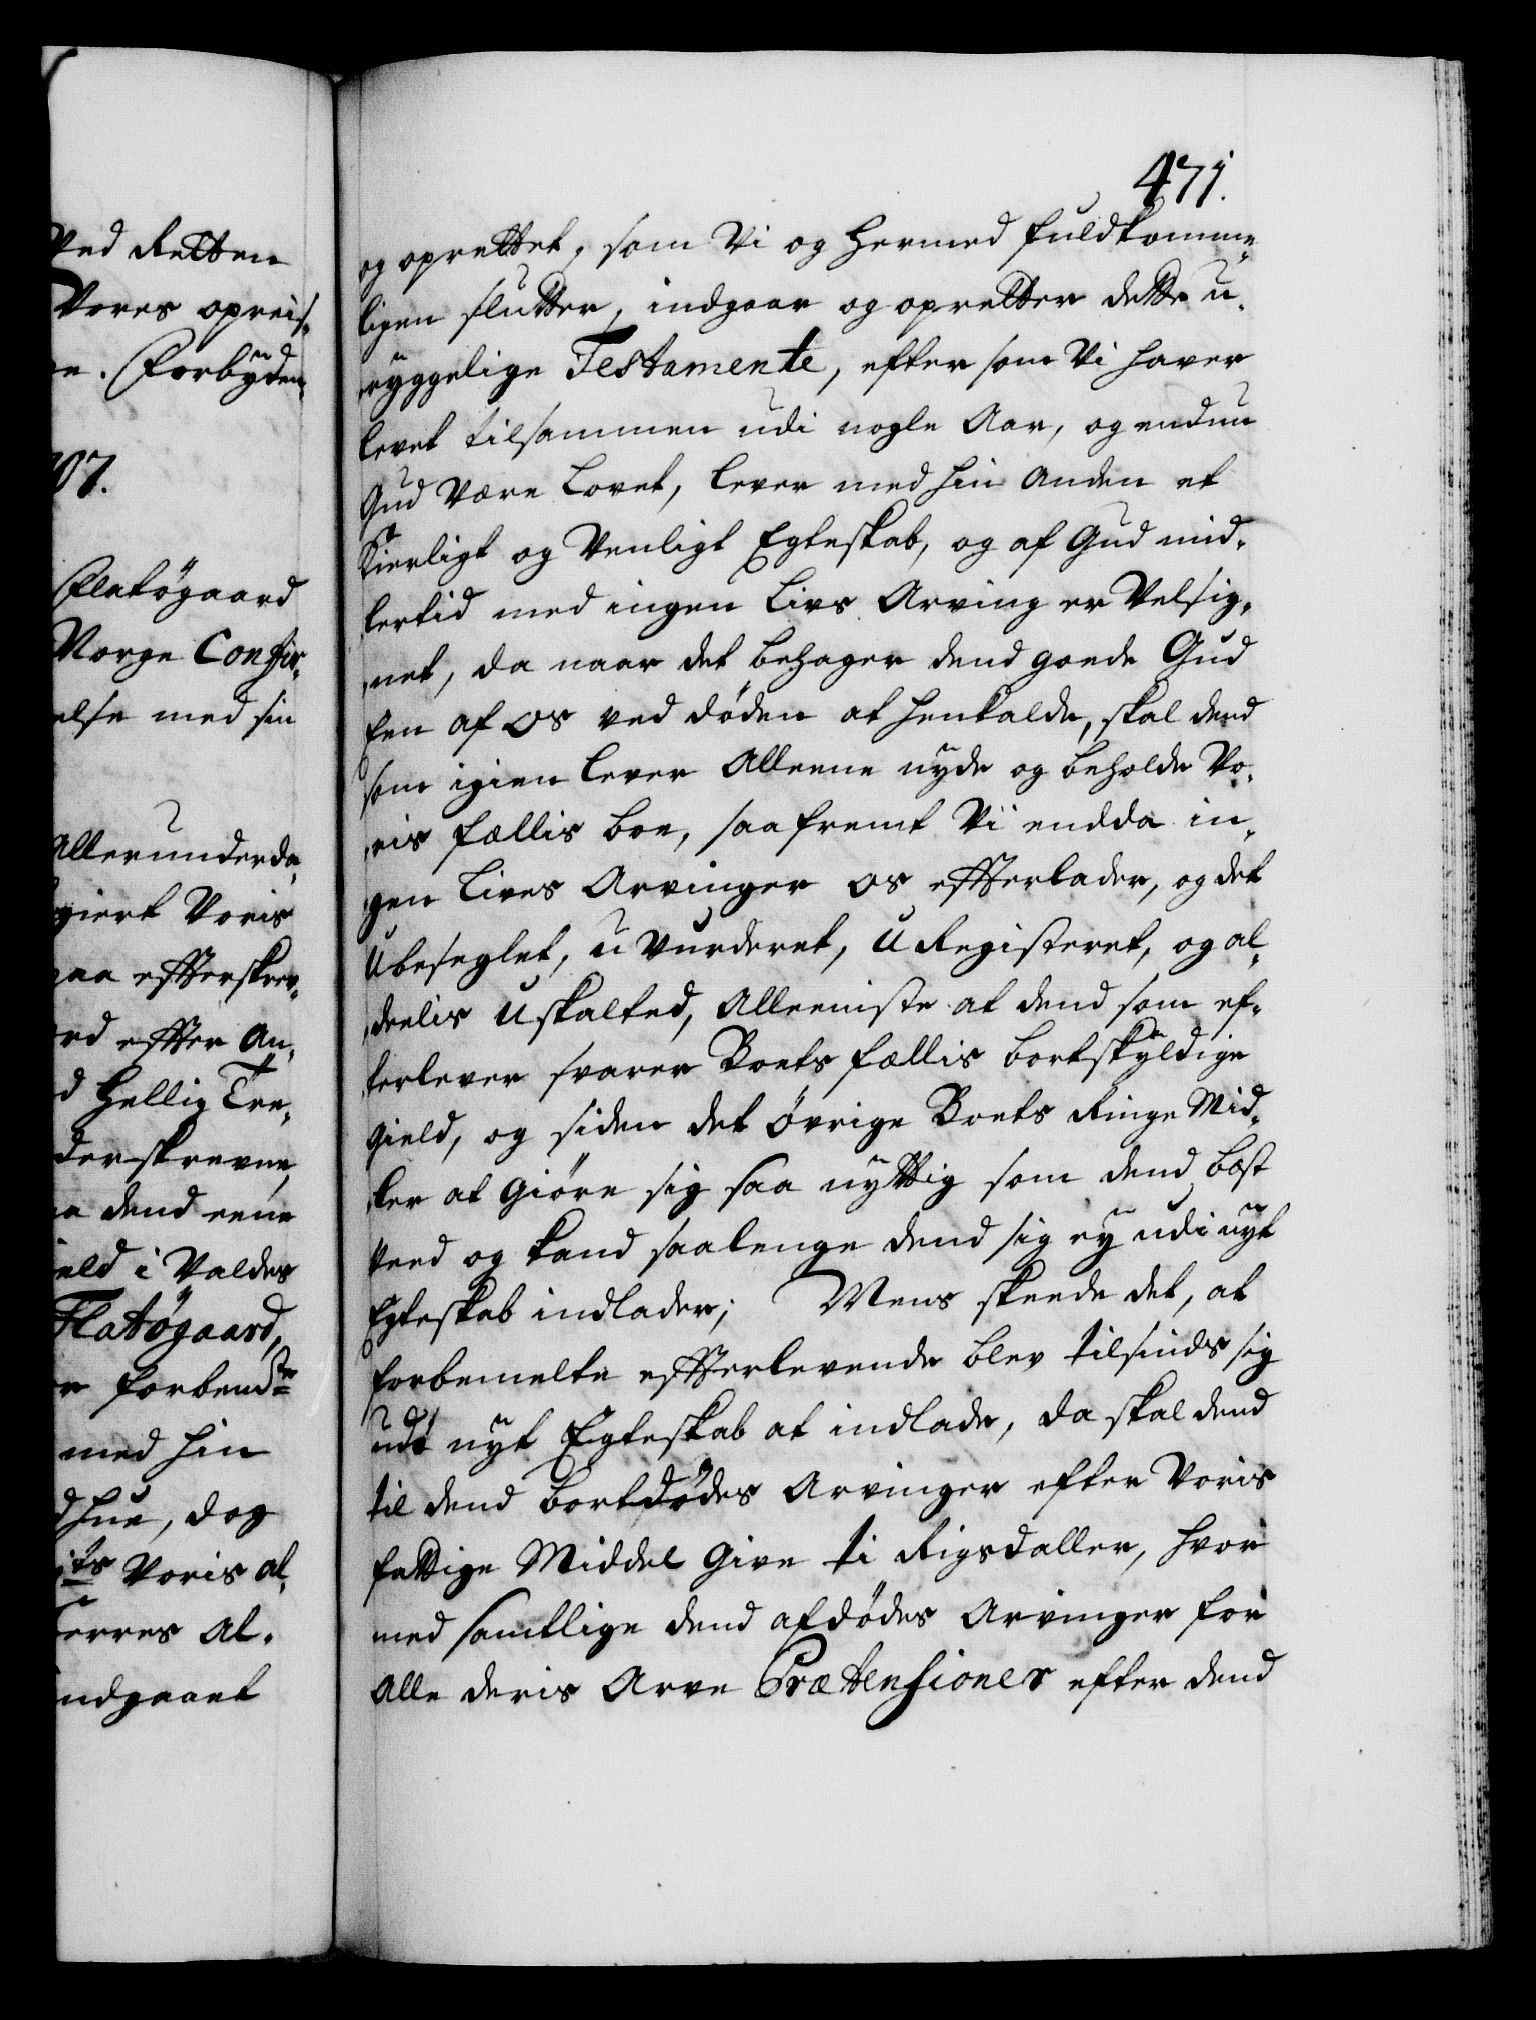 Ved Retten
Vores opreis,
n. Forbÿden,
07.
Flatögaard
Norge Confir,
else med sin
Allerunderda,
giert Voris
paa effterskrev,
rd effter An,
d Hellig Tre,
derskrevne,
a dend eene
ield i Valders
Flatögaard,
forbendte
med hin
dhue, dog
Voris al,
Herres Al,
indgaaet
471.
og oprettet, som Vi og hermed fuldkomme,
ligen slutter, indgaar og opretter dette u,
ryggelige Testamente, efter som Vi haver
levet tilsammen udi nogle Aar, og endnu
Gud være Lovet, lever med hin Anden et
Kierligt og Venligt Egteskab, og af Gud mid,
lertid med ingen Livs Arving er Velsig,
net, da naar det behager dend goede Gud
Een af os ved döden at henkalde, skal dend
som igien lever Alleene nyde og beholde Vo,
ris fællis boe, saafremt Vi endda in,
gen Lives Arvinger os effterlader, og det
Ubeseglet, u Vurderet, U Registeret, og al,
deelis Uskifted, Alleeniste at dend som ef,
terlever svarer Boets fællis bortskyldige
gield, og siden det övrige Boets Ringe Mid,
ler at giöre sig saa nyttig som dend best
veed og kand saalenge dend sig ey udi nyt
Egteskab indlader; Mens skeede det, at
forbemelte effterlevende blev tilsinds sig
udi nyt Egteskab at indlade, da skal dend
til dend bortdödes Arvinger efter Voris
fattige Middel Give ti Rigsdaller, hvor
med samtlige dend afdödes Arvinger for
Alle deris Arve Prætensioner efter dend